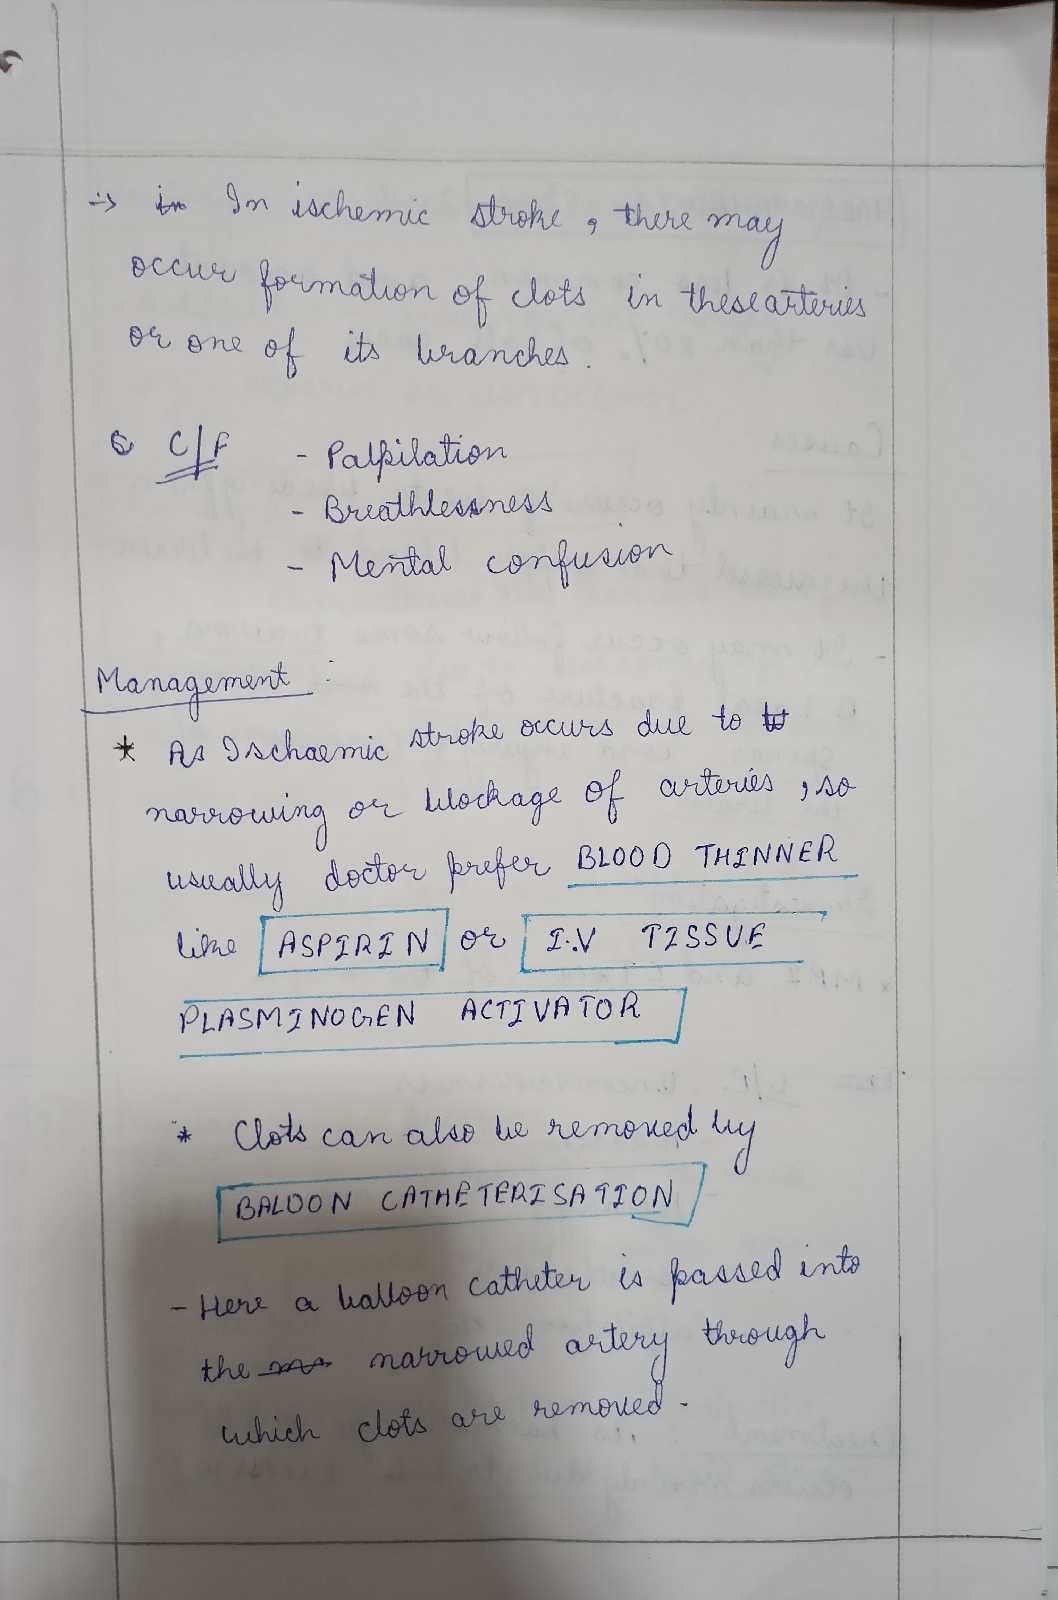 → in In ischemic stroke, there may
occur formation of clots in these arteries
or one of its branches.
C/F - Palpilation
- Breathlessness
- Mental confusion
Management :
* As Ischaemic stroke occurs due to to
narrowing or blockage of arteries, so
usually doctor prefer BLOOD THINNER
like ASPIRIN or I.V TISSUE
PLASMINOGEN ACTIVATOR
* Clots can also be removed by
BALOON CATHETERISATION
- Here a balloon catheter is passed into
the narrowed artery through
which clots are removed.